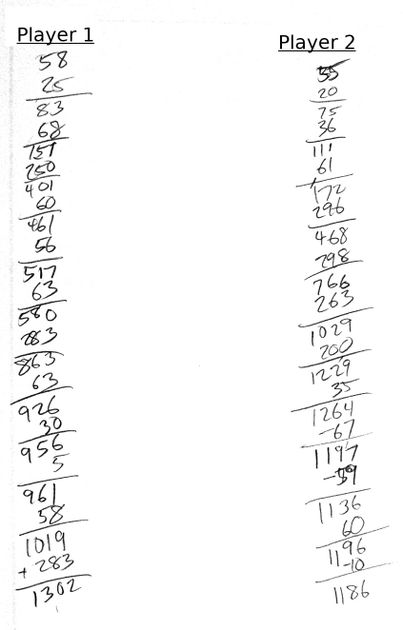 Player 1
58
25
83
68
151
250
401
60
461
56
517
63
580
283
863
63
926
30
956
5
961
58
1019
+ 283
1302
Player 2
55
20
75
36
111
61
172
296
468
298
766
263
1029
200
1229
35
1264
-67
1197
1136
60
1196
-10
1186